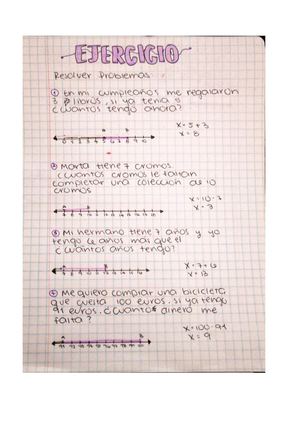 EJERCICIO
Resolver Problemas
① En mi cumpleaños me regalaron
3 libros, si ya tenia 5
¿cuantos tengo ahora?
x = 5 + 3
x = 8
② Marta tiene 7 cromos
¿cuantos cromos le faltan
completar una coleccion de 10
cromos
x = 10 - 7
x = 3
③ Mi hermano tiene 7 años y yo
tengo 6 años mas que el
¿cuantos años tengo?
x = 7 + 6
x = 13
④ Me quiero comprar una bicicleta
que cuesta 100 euros. si ya tengo
91 euros. ¿cuanto dinero me
falta?
x = 100 - 91
x = 9